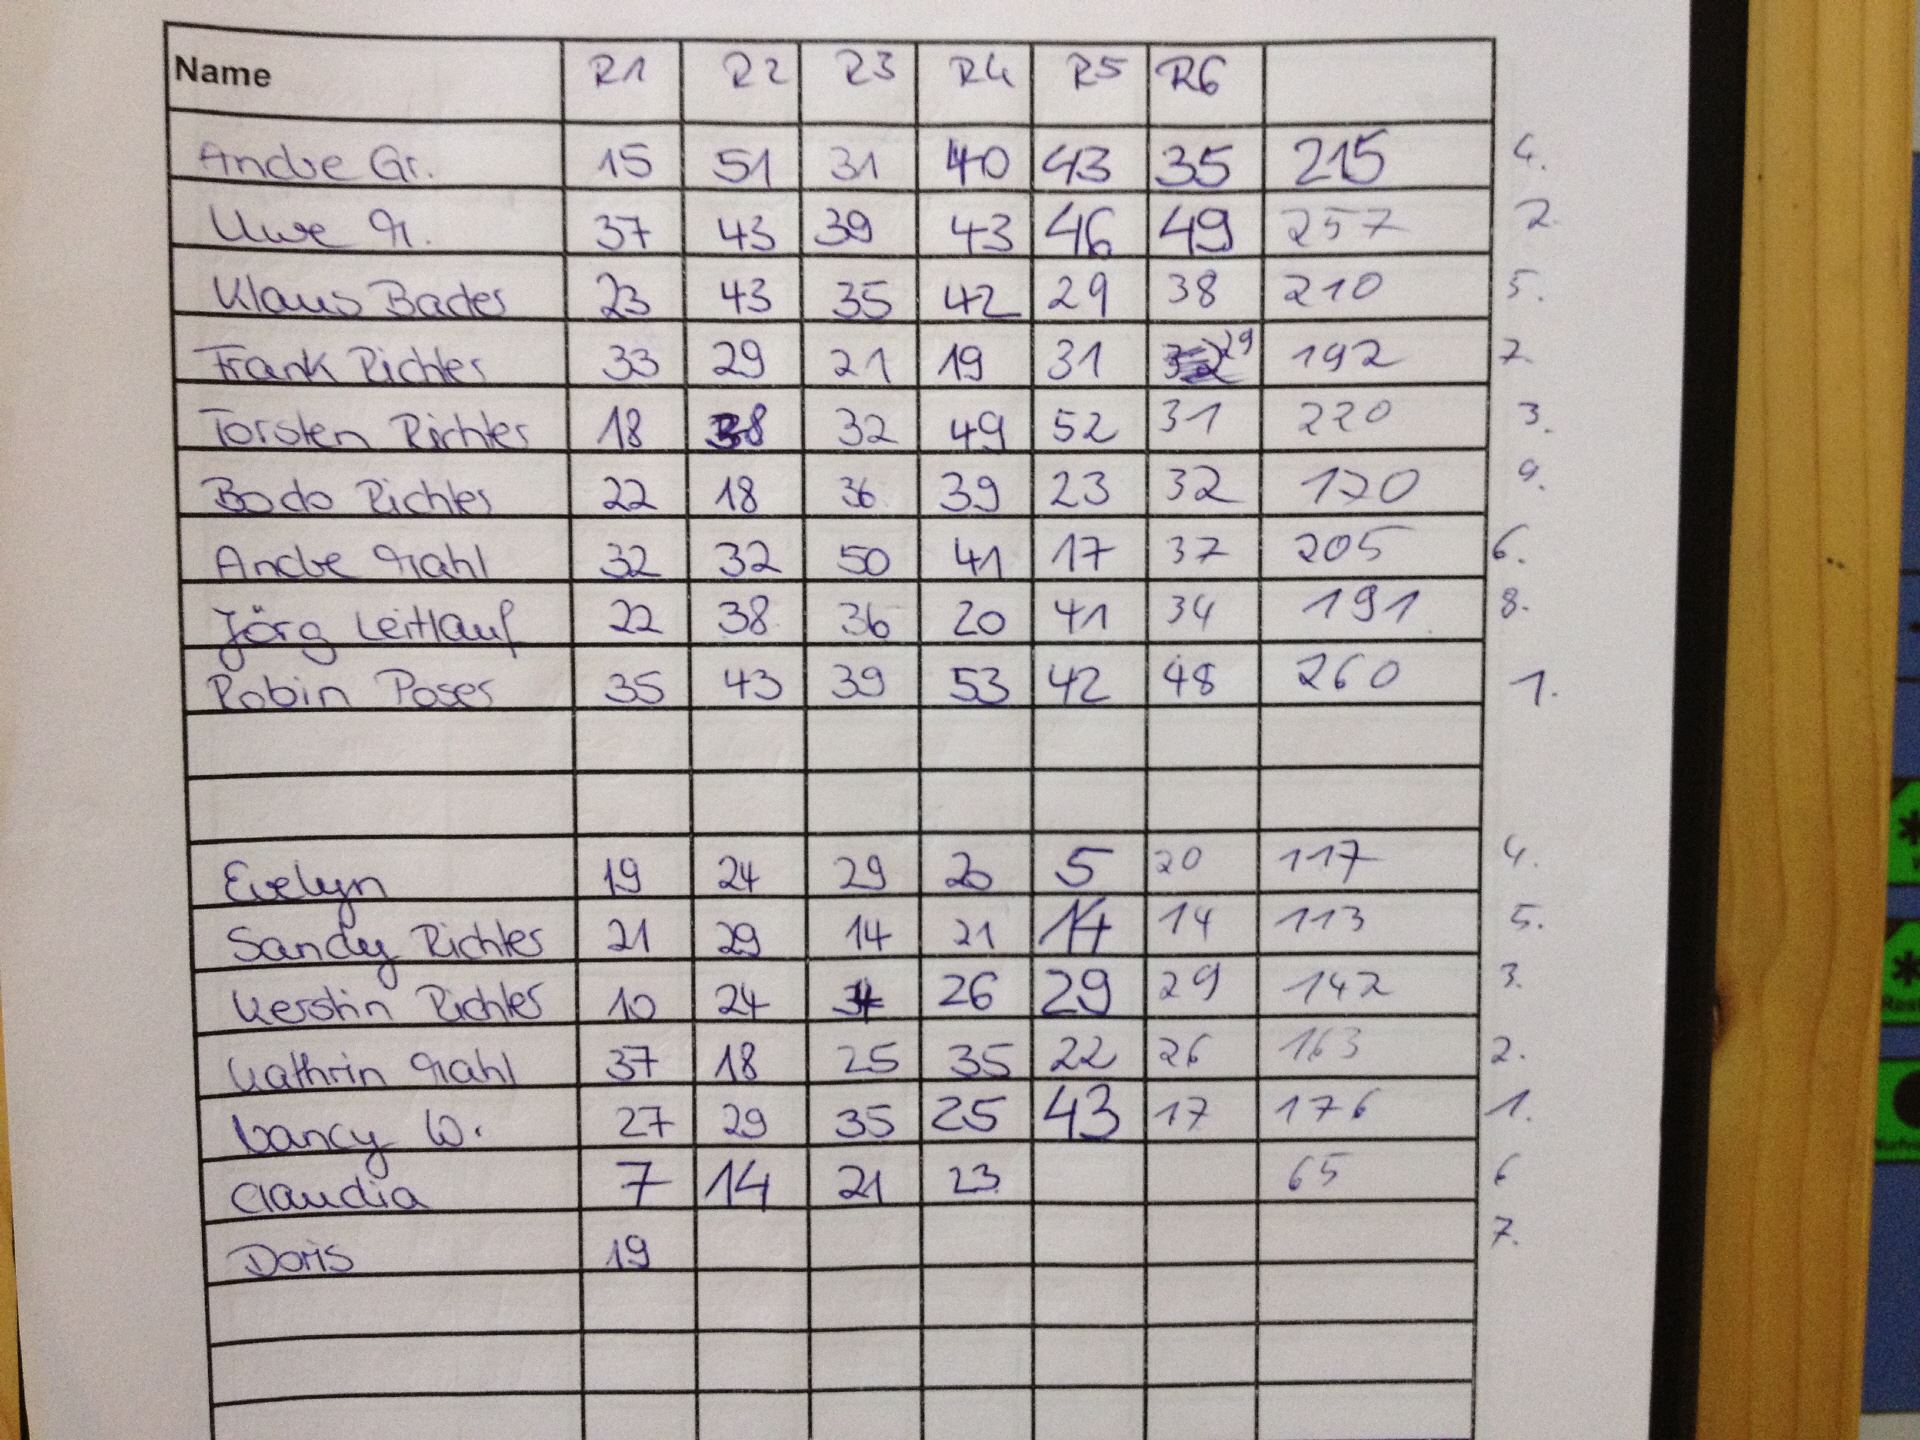 Name R1 R2 R3 R4 R5 R6
Andre Gr. 15 51 31 40 43 35 215 4.
Uwe 37 43 39 43 46 49 257 2.
Klaus Bader 23 43 35 42 29 38 210 5.
Frank Richter 33 29 21 19 31 29 192 7.
Torsten Richter 18 38 32 49 52 31 220 3.
Bodo Richter 22 18 36 39 23 32 170 9.
Andre Mahl 32 32 50 41 17 37 205 6.
Jörg Leitlauf 22 38 36 20 41 34 191 8.
Robin Poser 35 43 39 53 42 48 260 1.
Evelyn 19 24 29 20 5 20 117 4.
Sandy Richter 21 29 14 21 14 14 113 5.
Kerstin Richter 10 24 26 29 29 142 3.
Kathrin Mahl 37 18 25 35 22 26 163 2.
Nancy W. 27 29 35 25 43 17 176 1.
Claudia 7 14 21 23 65 6
Doris 19 7.